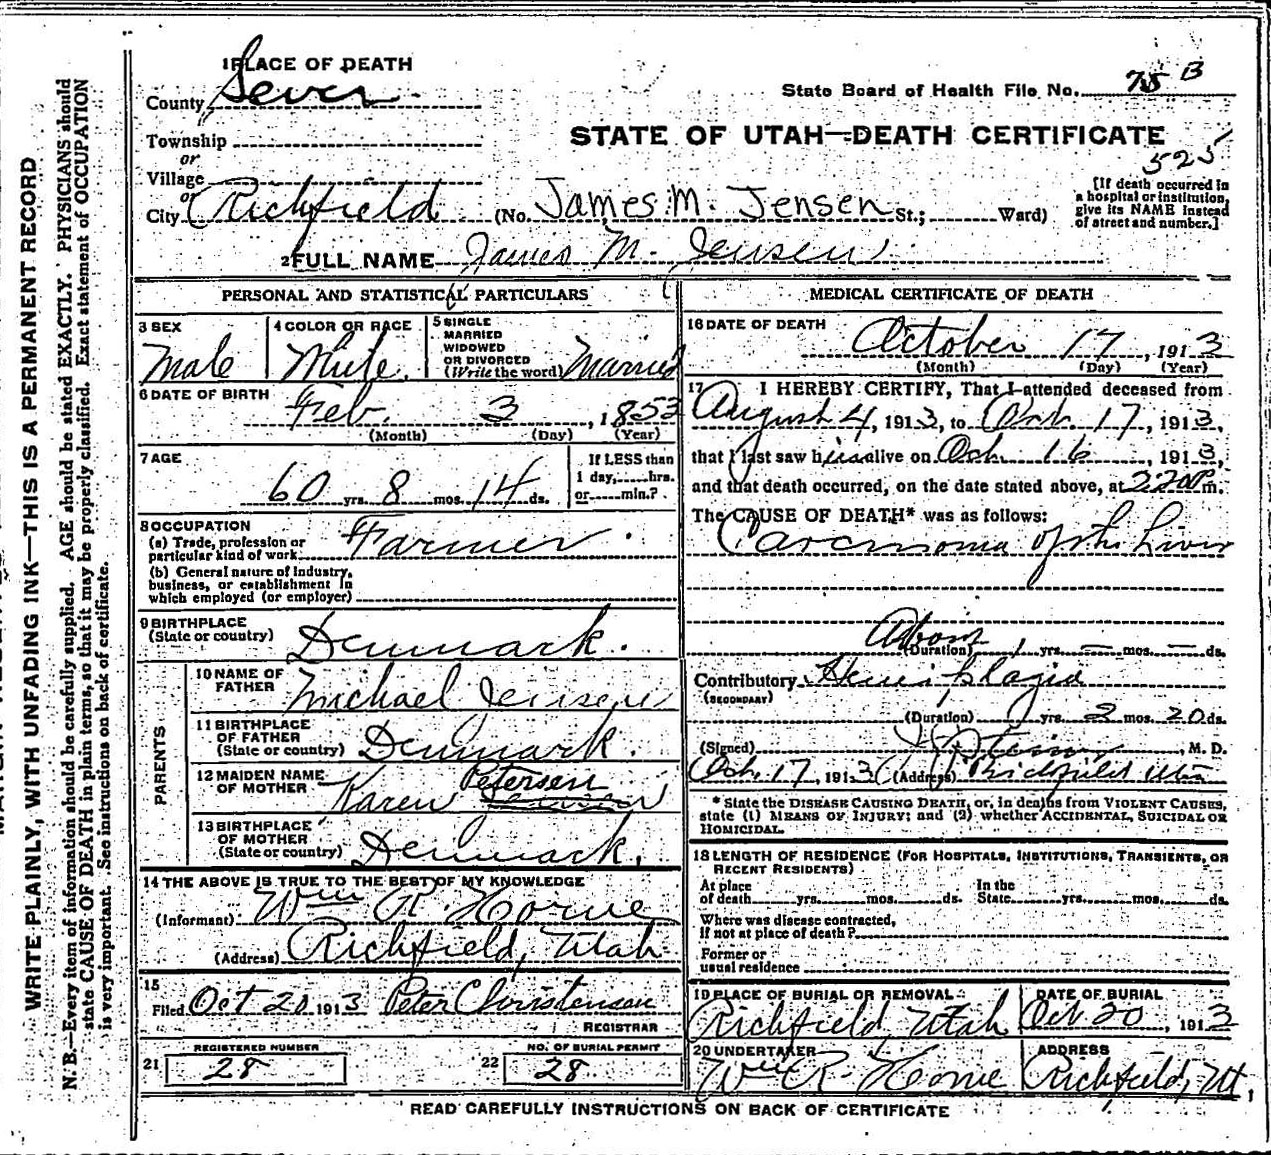 1 PLACE OF DEATH
County Sevier
State Board of Health File No. 75 B
Township
or
STATE OF UTAH—DEATH CERTIFICATE
525
Village
or
City Richfield (No. James M. Jensen St.; Ward)
[If death occurred in
a hospital or institution,
give its NAME instead
of street and number.]
2 FULL NAME James M. Jensen
PERSONAL AND STATISTICAL PARTICULARS
3 SEX
Male
4 COLOR OR RACE
White
5 SINGLE
MARRIED
WIDOWED
OR DIVORCED
(Write the word) Married
6 DATE OF BIRTH
Feb. 3, 1853
(Month) (Day) (Year)
7 AGE
60 yrs. 8 mos. 14 ds.
If LESS than
1 day, hrs.
or min.?
8 OCCUPATION
(a) Trade, profession or
particular kind of work Farmer
(b) General nature of Industry,
business, or establishment in
which employed (or employer)
9 BIRTHPLACE
(State or country) Denmark.
PARENTS
10 NAME OF
FATHER Michael Jensen
11 BIRTHPLACE
OF FATHER
(State or country) Denmark.
12 MAIDEN NAME
OF MOTHER Karen Petersen
13 BIRTHPLACE
OF MOTHER
(State or country) Denmark.
14 THE ABOVE IS TRUE TO THE BEST OF MY KNOWLEDGE
(Informant) Wm R. Horne
(Address) Richfield, Utah
15
Filed Oct 20 1913 Peter Christensen
REGISTRAR
REGISTERED NUMBER
21 28
NO. OF BURIAL PERMIT
22 28
MEDICAL CERTIFICATE OF DEATH
16 DATE OF DEATH
October 17, 1913
(Month) (Day) (Year)
17 I HEREBY CERTIFY, That I attended deceased from
August 4, 1913, to Oct. 17, 1913,
that I last saw him alive on Oct. 16, 1913,
and that death occurred, on the date stated above, at 220 P m.
The CAUSE OF DEATH* was as follows:
Carcinoma of the Liver
About
(Duration) 1 yrs. — mos. — ds.
Contributory Hemiplagia
(SECONDARY)
(Duration) yrs. 2 mos. 20 ds.
(Signed) , M. D.
Oct. 17, 1913 (Address) Richfield Utah
* State the DISEASE CAUSING DEATH, or, in deaths from VIOLENT CAUSES,
state (1) MEANS OF INJURY; and (2) whether ACCIDENTAL, SUICIDAL OR
HOMICIDAL.
18 LENGTH OF RESIDENCE (FOR HOSPITALS, INSTITUTIONS, TRANSIENTS, OR
RECENT RESIDENTS)
At place
of death yrs. mos. ds.
In the
State yrs. mos. ds.
Where was disease contracted,
If not at place of death?
Former or
usual residence
19 PLACE OF BURIAL OR REMOVAL
Richfield, Utah
DATE OF BURIAL
Oct 20, 1913
20 UNDERTAKER
Wm R. Horne
ADDRESS
Richfield, Ut.
READ CAREFULLY INSTRUCTIONS ON BACK OF CERTIFICATE
WRITE PLAINLY, WITH UNFADING INK—THIS IS A PERMANENT RECORD
N. B.—Every item of information should be carefully supplied. AGE should be stated EXACTLY. PHYSICIANS should
state CAUSE OF DEATH in plain terms, so that it may be properly classified. Exact statement of OCCUPATION
is very important. See instructions on back of certificate.